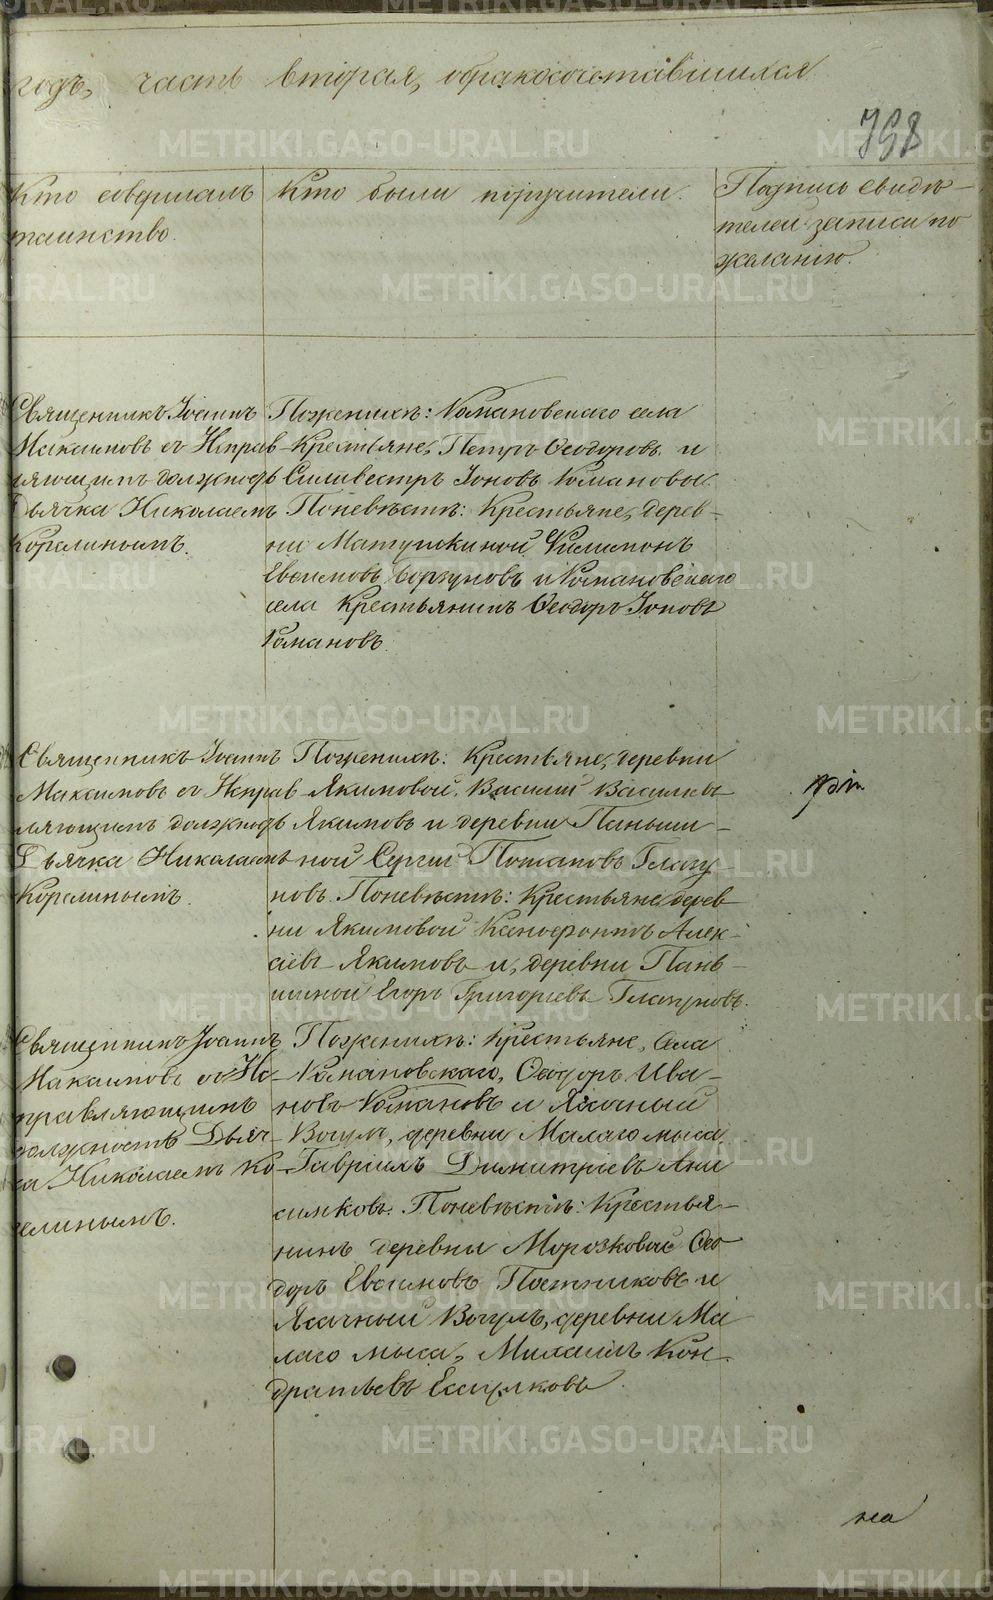 годъ, часть вторая, о бракосочетавшихся
Кто совершалъ
таинство.
Кто были поручители.
Подпись свидѣ-
телей записи по
желанію.
Священникъ Іоаннъ
Макаимовъ съ Исправ-
ляющимъ должность
Дьячка Николаемъ
Корелинымъ.
Поженихѣ: Романовскаго села
Крестьяне, Петръ Ѳеодоровъ и
Силивестръ Іоновъ Романовы.
Поневѣстѣ: Крестьяне, дерев-
ни Матушкиной Филимонъ
Евсимовъ и Романовскаго
села Крестьянинъ Ѳеодоръ Іоновъ
Романовъ.
Священникъ Іоаннъ
Максимовъ съ Исправ
ляющимъ должность
Дьячка Николаемъ
Корелинымъ.
Поженихѣ: Крестьяне, деревни
Якимовой, Василий Васильевъ
Якимовъ и деревни Паньши-
ной Сергий Потаповъ Глазу
новъ. Поневѣстѣ: Крестьяне, дерев
ни Якимовой Ксенофонтъ Алек-
сѣевъ Якимовъ и, деревни Пань-
шиной Егоръ Григорьевъ Глазуновъ.
Священникъ Іоаннъ
Макаимовъ съ Ис-
правляющимъ
должность Дьяч-
ка Николаемъ Ко-
релинымъ.
Поженихѣ: Крестьяне, Села
Романовскаго, Ѳеодоръ Ива-
новъ Романовъ и Ясачный
Вогулъ, деревни Малаго мыса,
Гавріилъ Димитріевъ Ани
симковъ. Поневѣстѣ: Крестья-
нинъ деревни Морозковой Ѳео
доръ Евсимовъ Постниковъ и
Ясачный Вогулъ, деревни Ма
лаго мыса, Михаилъ Кон-
дратьевъ Есаулковъ.
на
METRIKI.GASO-URAL.RU